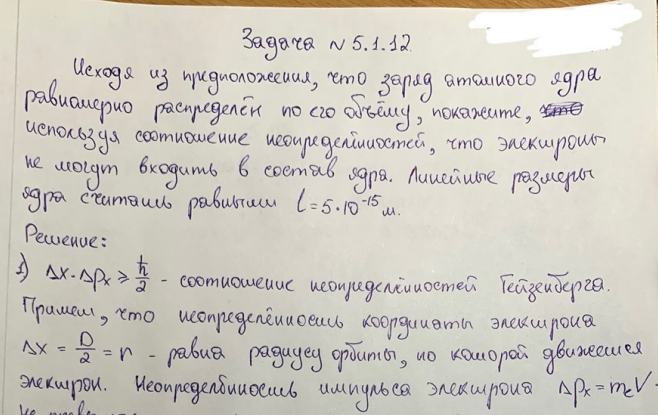 Задача №5.1.12.
Исходя из предположения, что заряд атомного ядра
равномерно распределён по его объёму, покажите,
используя соотношение неопределённостей, что электроны
не могут входить в состав ядра. Линейные размеры
ядра считать равными l = 5·10⁻¹⁵ м.
Решение:
1) Δx·Δpₓ ≥ ħ/2 - соотношение неопределённостей Гейзенберга.
Примем, что неопределённость координаты электрона
Δx = D/2 = r - равна радиусу орбиты, по которой движется
электрон. Неопределённость импульса электрона Δpₓ =